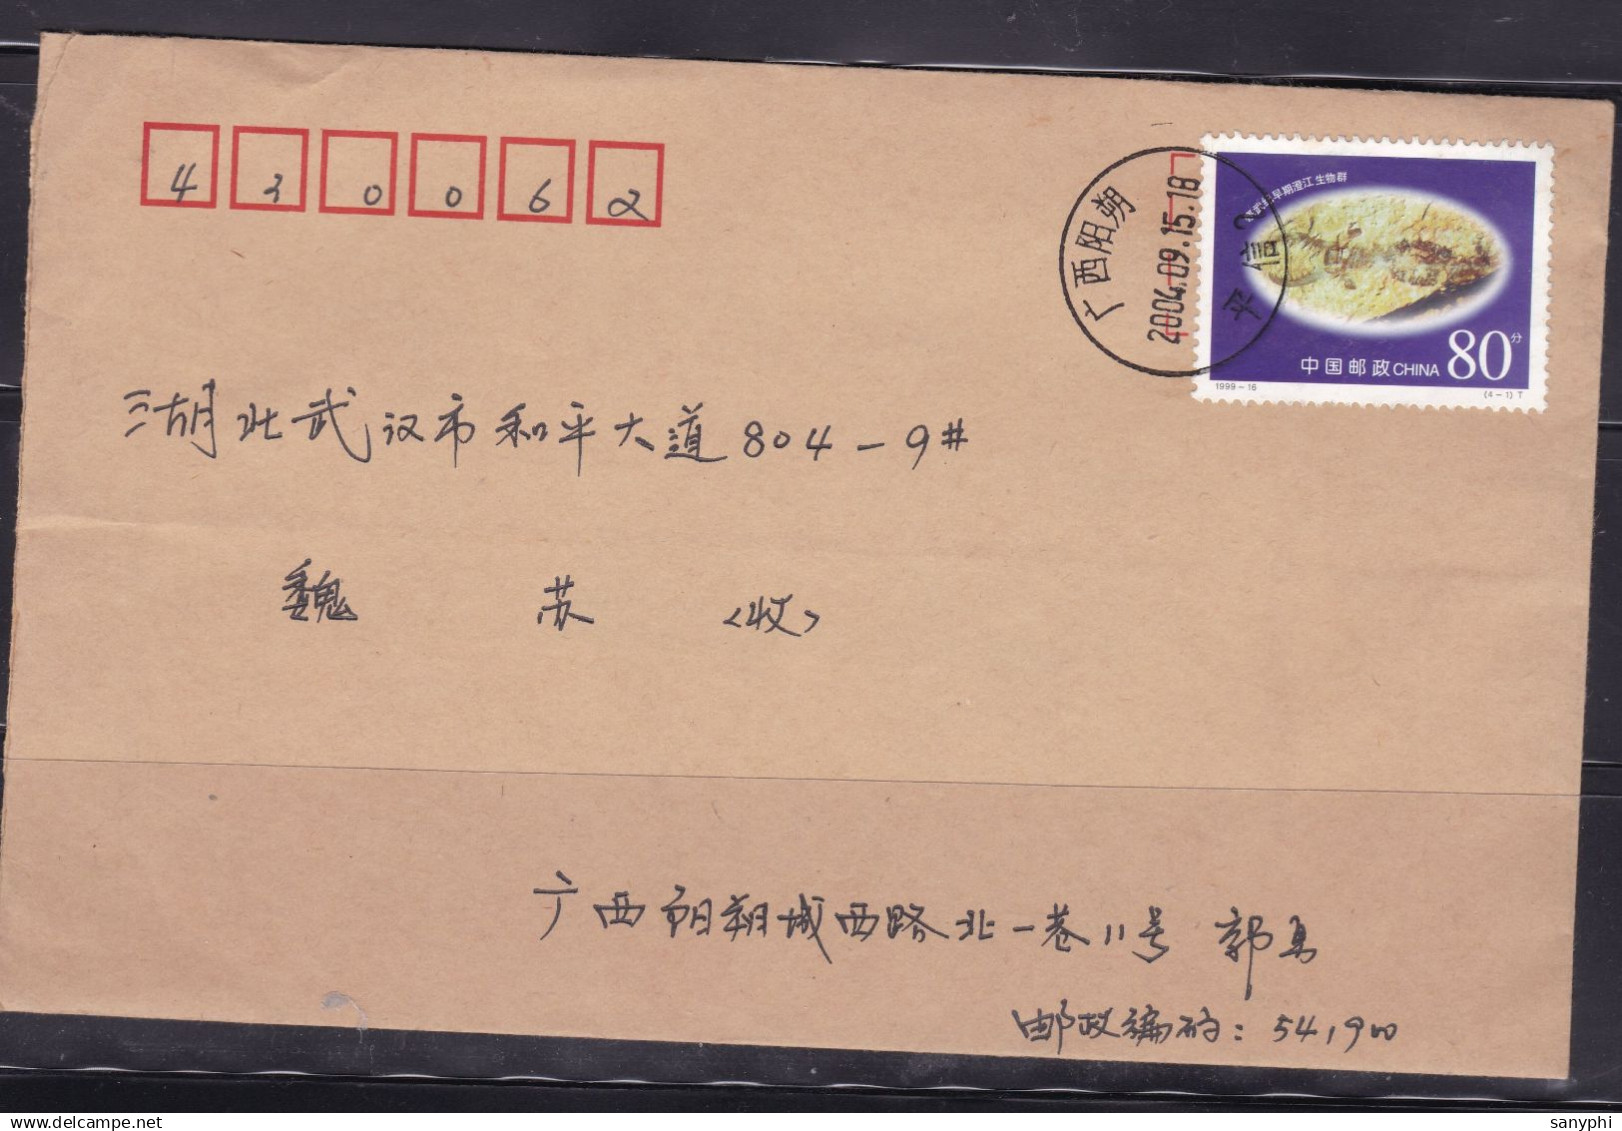 430062
寒武纪早期澄江生物群
中国邮政CHINA 80分
1999-16 (4-1)T
广西阳朔
2004.09.15.18
平信2
湖北武汉市和平大道804-9#
魏 苏 <收>
广西阳朔城西路北一巷11号 郭
邮政编码:541900
sanyphi